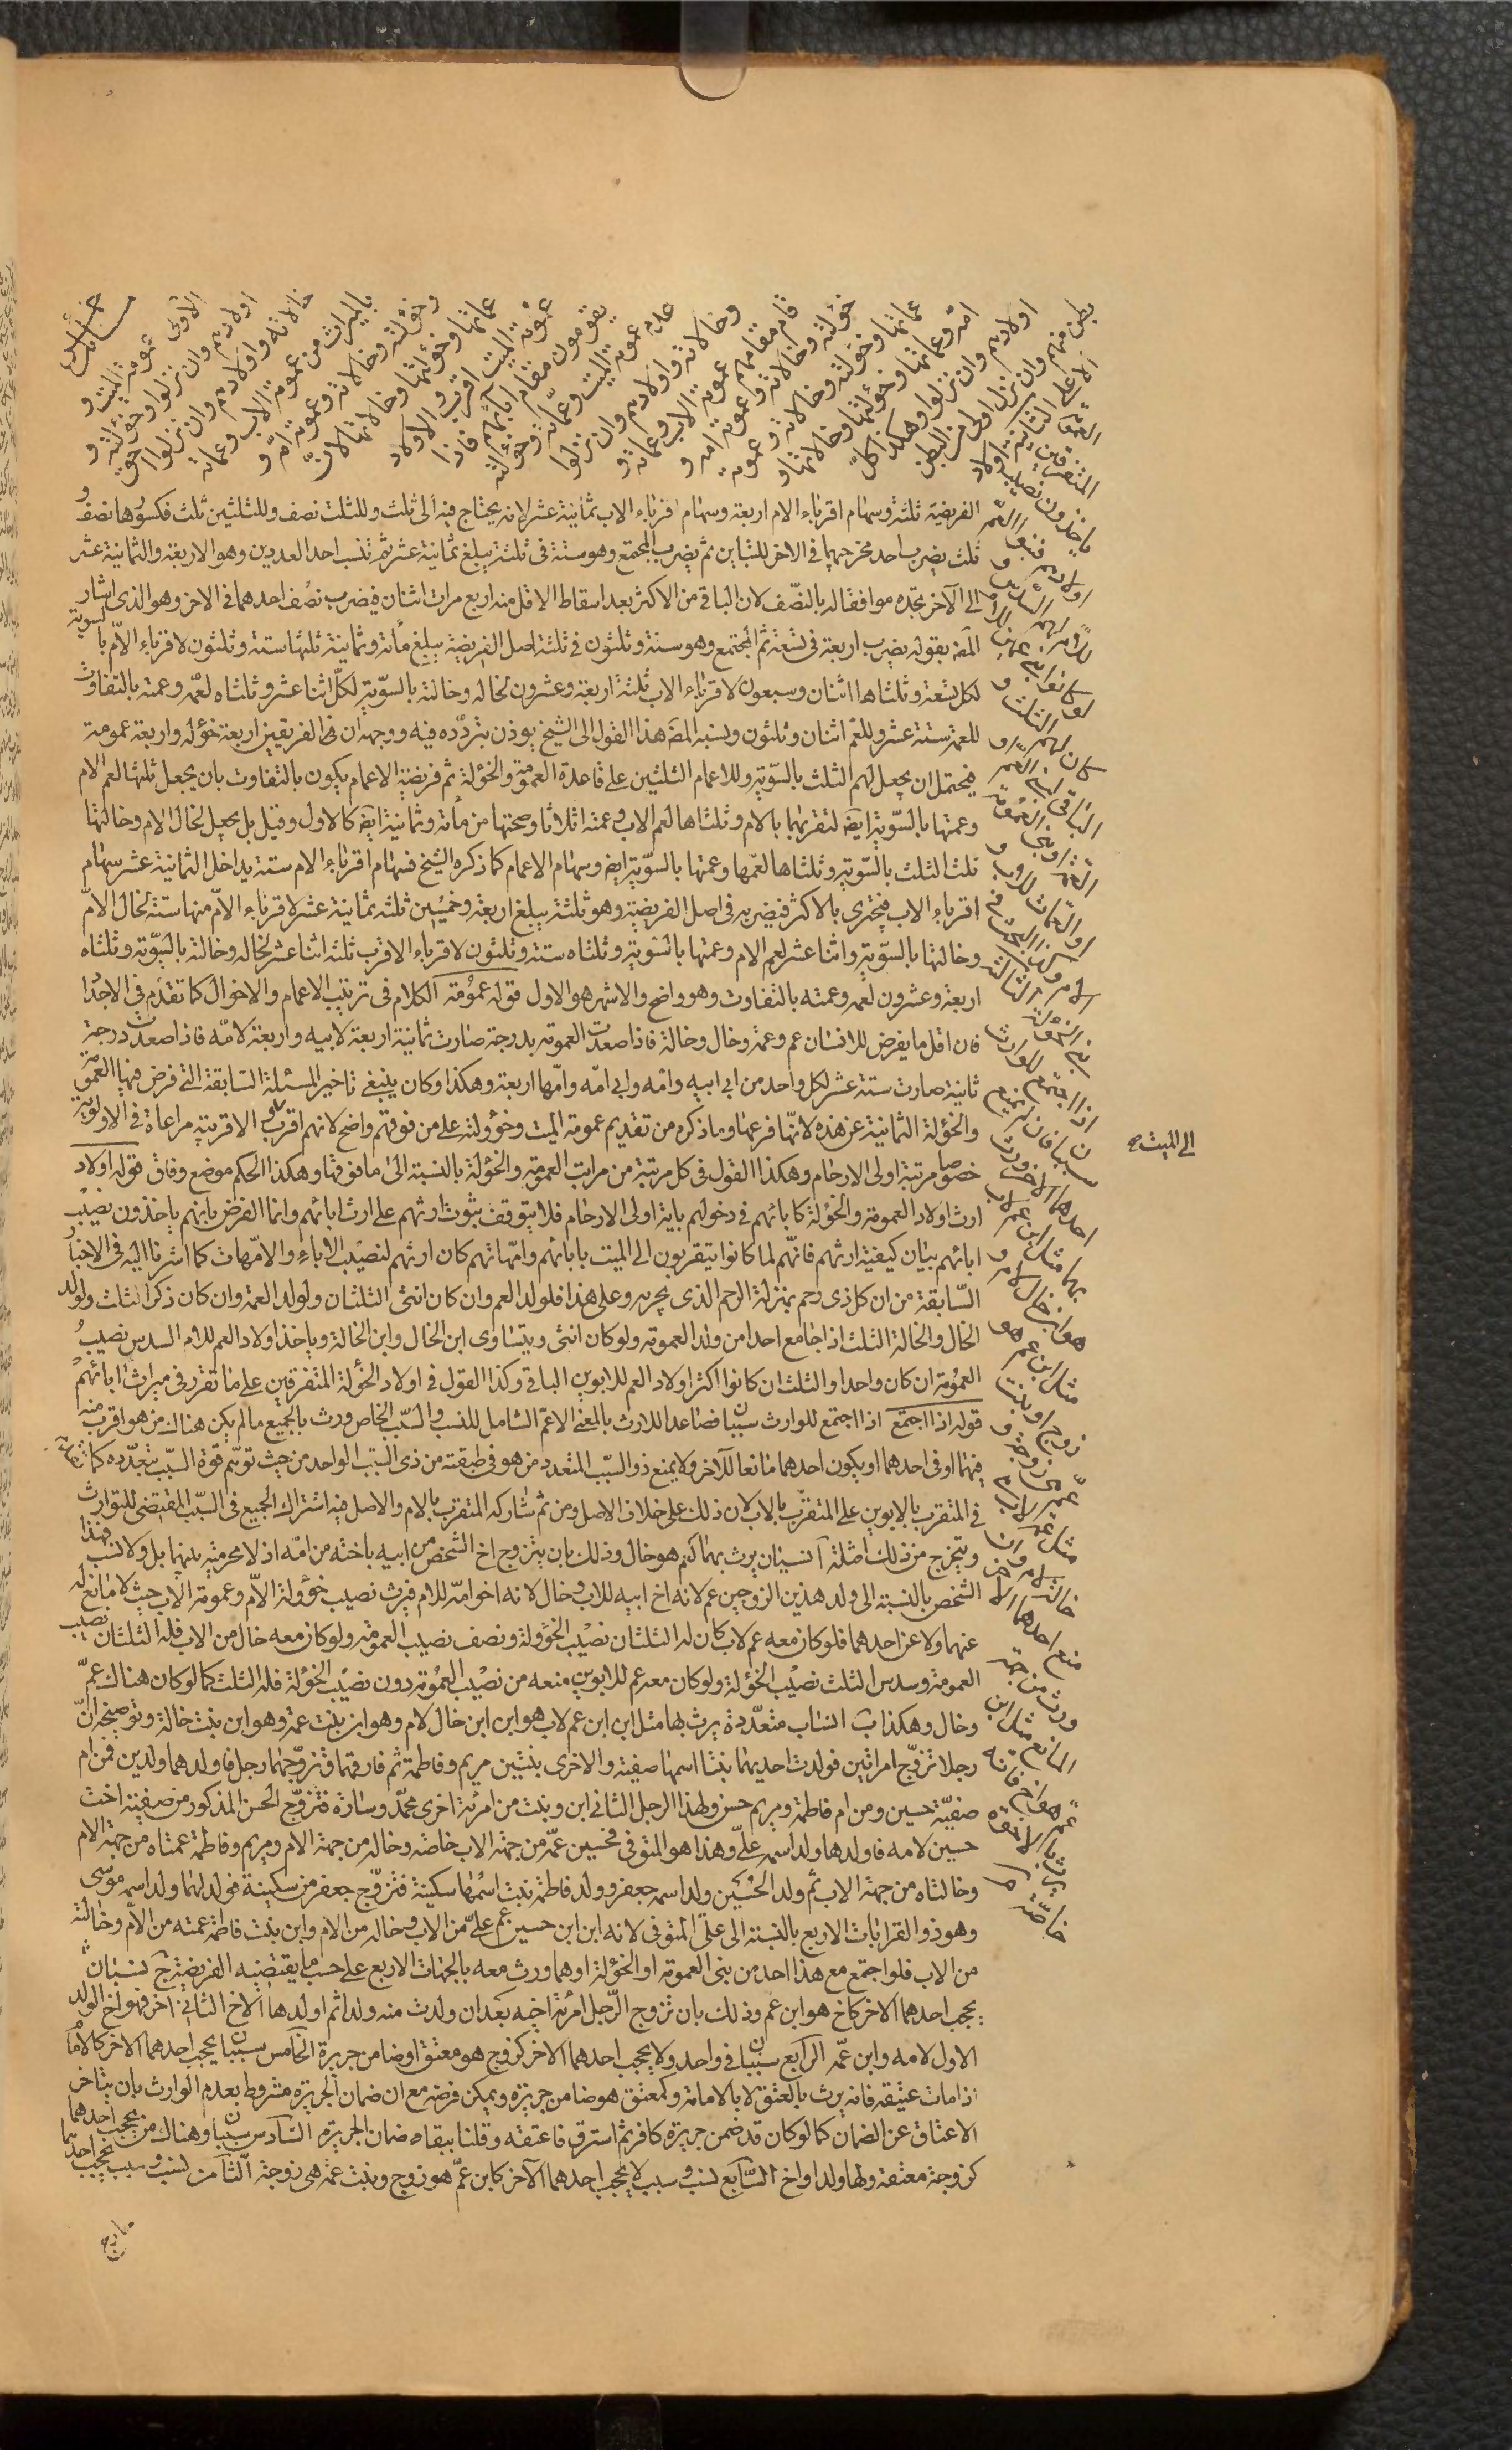 خمس مسائل
الاولى عمومة الميت و
اولادهم وان نزلوا وخؤلته و
خالاته واولادهم وان نزلوا احق
بالميراث من عمومة الاب وعماته
وخؤلته وخالاته وعمومة امه و
عماتها وخؤلتها وخالاتها لان
عمومة الميت اقرب والاولاد
يقومون مقام آبائهم فاذا
عدم عمومة الميت وعماته وخؤلته
وخالاته واولادهم وان نزلوا
قام مقامهم عمومة الاب وعماته و
خؤلته وخالاته وعمومة امه و
عماتها وخؤلته وخالاته و عمومة
امه وعماتها وخؤلتها وخالاتها و
اولادهم وان نزلوا وهكذا كل
بطن منهم وان نزل اولى من البطن
الاعلى الثانية اولاد
العمومة المتفرقين
ياخذون نصيب
اولادهم فبنو العم
للام لهم السدس و
لو كانوا بني عمين للام
كان لهم الثلث و
الباقي لبني العم او
العمة او بني العمومة
او العمات للاب و
الام وكذا البحث في
بني الخؤلة الثالثة
اذا اجتمع للوارث
سببان فان لم يمنع
احدهما الاخر ورث
بهما مثل ابن عم لاب
هو ابن خال لام و
مثل ابن عم هو
زوج او بنت
عم هي زوجة و
مثل عمة لاب هي
خالة لام وان
منع احدهما الاخر
ورث من جهة
المانع مثل ابن
عم هو اخ فانه
يرث بالاخوة
خاصة
الفريضة ثلثة وسهام اقرباء الام اربعة وسهام اقرباء الاب ثمانية عشر لانه يحتاج فيه الى ثلث وللثلث نصف وللثلثين ثلث فكسورها نصف و
ثلث يضرب احد مخرجيهما في الاخر للتباين ثم يضرب المجتمع وهو ستة في ثلثة يبلغ ثمانية عشر ثم تنسب احد العددين وهو الاربعة والثمانية عشر
الى الآخر تجده موافقا له بالنصف لان الباقي من الاكثر بعد اسقاط الاقل منه اربع مرات اثنان فيضرب نصف احدهما في الاخر وهو الذي اشار
المص بقوله يضرب اربعة في تسعة ثم المجتمع وهو ستة وثلثون في ثلثة اصل الفريضة يبلغ مأة وثمانية ثلثها ستة وثلثون لاقرباء الام بالسوية
لكل تسعة وثلثاها اثنان وسبعون لاقرباء الاب ثلثه اربعة وعشرون لخاله وخالته بالسوية لكل اثنا عشر وثلثاه لعمه وعمته بالتفاوت
للعمة ستة عشر وللعم اثنان وثلثون ونسبة المص هذا القول الى الشيخ يوذن بتردده فيه ووجهه ان في الفريقين اربعة خؤلة واربعة عمومة
فيحتمل ان يجعل لهم الثلث بالسوية وللاعمام الثلثين على قاعدة العمومة والخؤلة ثم فريضة الاعمام يكون بالتفاوت بان يجعل ثلثها لعم الام
وعمتها بالسوية ايض لتقربهما بالام وثلثاها لعم الاب وعمته اثلاثا وصحتها من مأة وثمانية ايض كالاول وقيل بل يجعل لخال الام وخالتها
ثلث الثلث بالسوية وثلثاها لعمها وعمتها بالسوية ايض وسهام الاعمام كما ذكره الشيخ فسهام اقرباء الام ستة يداخل الثمانية عشر سهام
اقرباء الاب فيجتزى بالاكثر فيضربه في اصل الفريضة وهو ثلثة يبلغ اربعة وخمسين ثلثه ثمانية عشر لاقرباء الام منها ستة لخال الام
وخالتها بالسوية واثنا عشر لعم الام وعمتها بالسوية وثلثاه ستة وثلثون لاقرباء الاقرب ثلثه اثنا عشر لخاله وخالته بالسوية وثلثاه
اربعة وعشرون لعمه وعمته بالتفاوت وهو واضح والاشهر هو الاول قوله عمومة الكلام في ترتيب الاعمام والاخوال كما تقدم في الاجداد
فان اقل ما يفرض للانسان عم وعمة وخال وخالة فاذا صعدت العمومة بدرجة صارت ثمانية اربعة لابيه واربعة لامه فاذا صعدت درجة
ثانية صارت ستة عشر لكل واحد من ابي ابيه وامه وابي امه وامها اربعة وهكذا وكان ينبغي تاخير المسئلة السابقة التي فرض فيها العمومة
والخؤلة الثمانية عن هذه لانها فرعها وما ذكره من تقديم عمومة الميت وخؤولته على من فوقهم واضح لانهم اقرب الاقربية مراعاة في الاولوية
خصوصا مرتبة اولى الارحام وهكذا القول في كل مرتبة من مراتب العمومة والخؤلة بالنسبة الى ما فوقها وهكذا الحكم موضع وفاق قوله اولاد
الى الميت صح
ارث اولاد العمومة والخؤلة كابائهم في دخولهم باية اولى الارحام فلا يتوقف ثبوت ارثهم على ارث ابائهم وانما الفرض بانهم ياخذون نصيب
ابائهم بيان كيفية ارثهم فانهم لما كانوا يتقربون الى الميت بابائهم وامهاتهم كان ارثهم لنصيب الاباء والامهات كما اشرنا اليه في الاخبار
السابقة من ان كل ذي رحم بمنزلة الرحم الذي يجر به وعلى هذا فلولد العم وان كان انثى الثلثان ولولد العمة وان كان ذكرا الثلث ولولد
الخال والخالة الثلث اذا جامع احدا من ولد العمومة ولو كان انثى ويتساوى ابن الخال وابن الخالة وياخذ اولاد العم للام السدس نصيب
العمومة ان كان واحدا والثلث ان كانوا اكثر اولاد العم للابوين الباقي وكذا القول في اولاد الخؤلة المتفرقين على ما تقرر في ميراث ابائهم
قوله اذا اجتمع اذا اجتمع للوارث سببان فصاعدا للارث بالمعنى الاعم الشامل للنسب والسبب الخاص ورث بالجميع ما لم يكن هناك من هو اقرب منه
فيهما او في احدهما او يكون احدهما مانعا للآخر ولا يمنع ذو السبب المتعدد من هو في طبقته من ذي السبب الواحد من حيث توهم قوة السبب بتعدده كما
في المتقرب بالابوين على المتقرب بالاب لان ذلك على خلاف الاصل ومن ثم شاركه المتقرب بالام والاصل فيه اشتراك الجميع في السبب المقتضي للتوارث
ويتخرج من ذلك امثلة آ نسبان يرث بهما كعم هو خال وذلك بان يتزوج اخ الشخص من ابيه باخته من امه اذ لا محرمية بينهما بل ولا نسب فهذا
الشخص بالنسبة الى ولد هذين الزوجين عم لانه اخ ابيه للاب وخال لانه اخو امه للام فيرث نصيب خؤولة الام وعمومة الاب حيث لا مانع له
عنهما ولا عن احدهما فلو كان معه عم لاب كان له الثلثان نصيب الخؤولة ونصف نصيب العمومة ولو كان معه خال من الاب فله الثلثان نصيب
العمومة وسدس الثلث نصيب الخؤلة ولو كان معه عم للابوين منعه من نصيب العمومة دون نصيب الخؤلة فله الثلث كما لو كان هناك عم
وخال وهكذا ب انساب متعددة يرث بها مثل ابن ابن عم لاب هو ابن ابن خال لام وهو ابن بنت عمة وهو ابن بنت خالة وتوضيحه ان
رجلا تزوج امراتين فولدت احديهما بنتا اسمها صفية والاخرى بنتين مريم وفاطمة ثم فارقهما فتزوجهما رجل فاولدهما ولدين فمن ام
صفية حسين ومن ام فاطمة ومريم حسن ولهذا الرجل الثاني ابن وبنت من امرئة اخرى محمد وسارة فتزوج الحسن المذكور من صفية اخت
حسين لامه فاولدها ولد اسمه علي وهذا هو المتوفى فحسين عمه من جهة الاب خاصة وخاله من جهة الام ومريم وفاطمة عمتاه من جهة الام
وخالتاه من جهة الاب ثم ولد الحسين ولد اسمه جعفر وولد فاطمة بنت اسمها سكينة فتزوج جعفر من سكينة فولد لهما ولد اسمه موسى
وهو ذو القرابات الاربع بالنسبة الى علي المتوفى لانه ابن ابن حسين عم علي من الاب وخاله من الام وابن بنت فاطمة عمته من الام وخالته
من الاب فلو اجتمع مع هذا احد من بني العمومة او الخؤلة او هما ورث معه بالجهات الاربع على حسب ما يقتضيه الفريضة ج نسبان
يحجب احدهما الاخر كاخ هو ابن عم وذلك بان تزوج الرجل امرئة اخيه بعد ان ولدت منه ولدا ثم اولدها الاخ الثاني اخر فهو اخ الولد
الاول لامه وابن عمه الرابع سببان في واحد ولا يحجب احدهما الاخر كزوج هو معتق او ضامن جريرة الخامس سببان يحجب احدهما الاخر كالامام
اذا مات عتيقه فانه يرث بالعتق لا بالامامة وكمعتق هو ضامن جريرة ويمكن فرضه مع ان ضمان الجريرة مشروط بعدم الوارث بان يتاخر
الاعتاق عن الضمان كما لو كان قد ضمن جريرة كافر ثم استرق فاعتقه وقلنا ببقاء ضمان الجريرة السادس سببان وهناك من يحجب احدهما
كزوجة معتقة ولها ولد او اخ السابع نسب وسبب لا يحجب احدهما الآخر كابن عم هو زوج وبنت عمة هي زوجة الثامن نسب وسبب يحجب احدهما